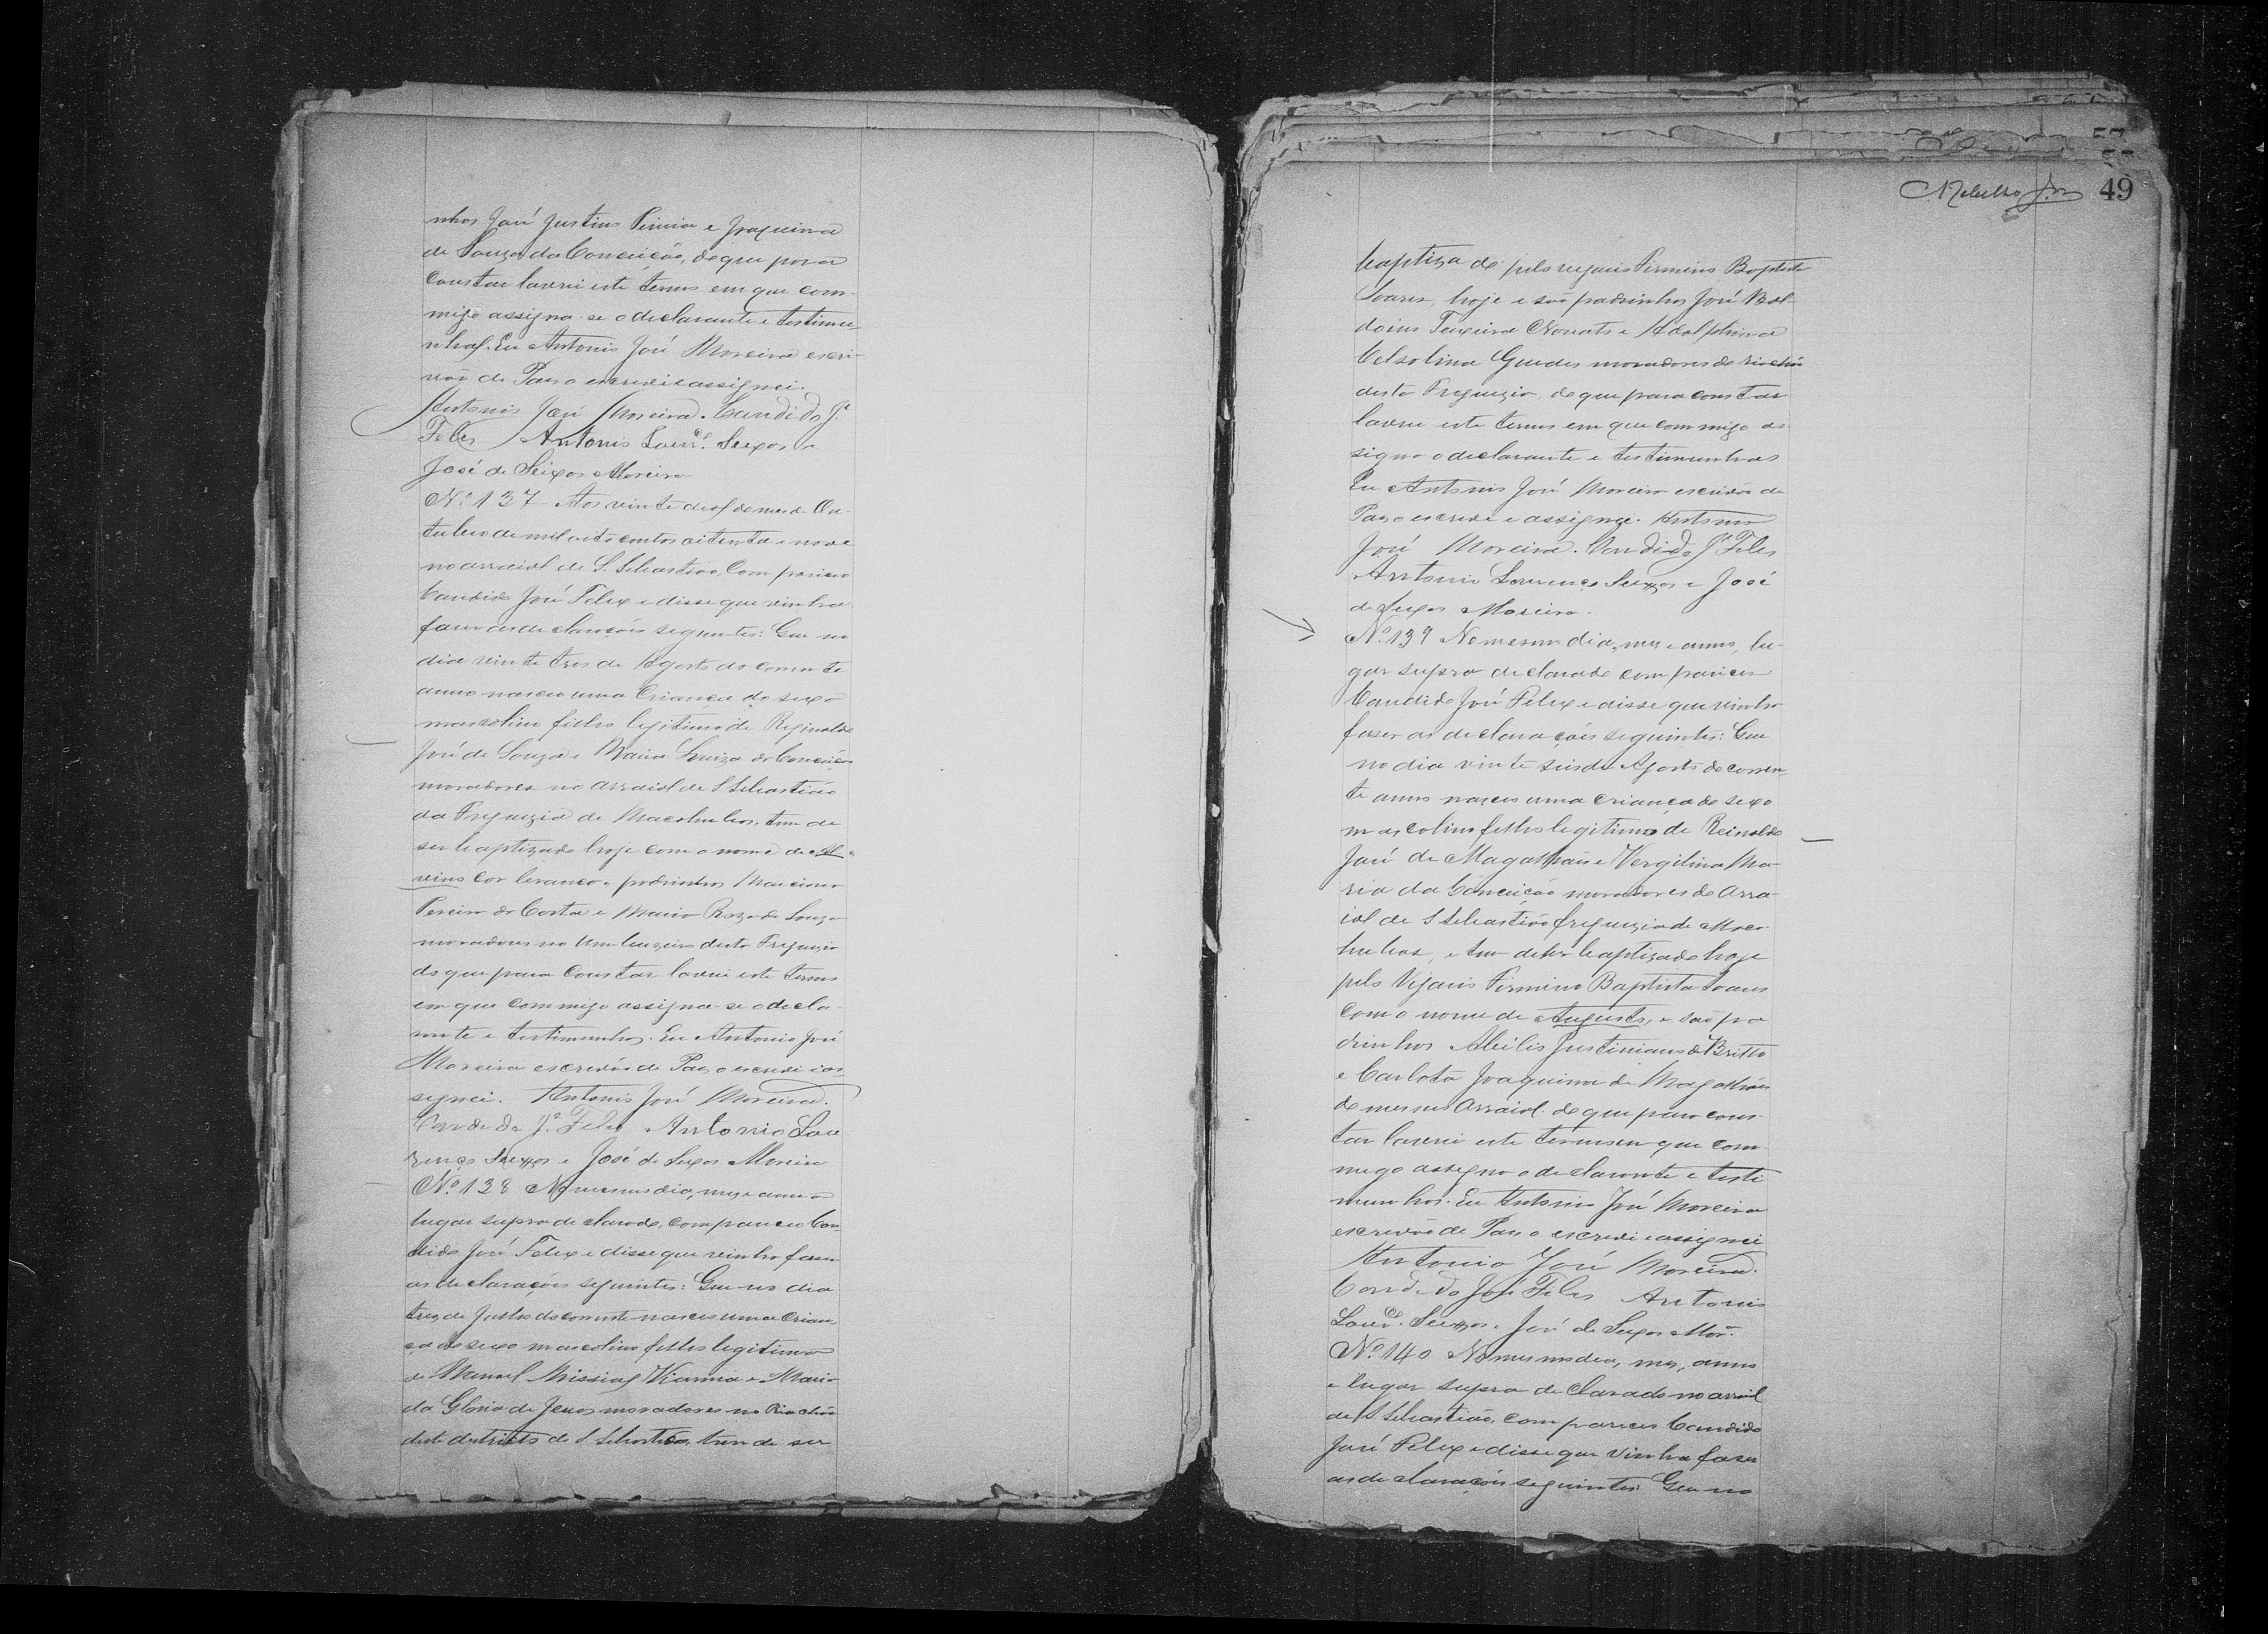 nhos José Justino Pereira e Joaquina
de Souza da Conceição, de que para
constar lavrei este termo em que com-
migo assigna-se o declarante e testimu-
nhas. Eu Antonio José Moreira escri-
vão de Paz o escrevi e assignei.
Antonio José Moreira. Candido J.e
Feles Antonio Lourço. Seixas e
José de Seixas Moreira
Nº 137 - Aos vinte dous do mes de Ou-
tubro de mil oito centos oitenta e nove
no arraial de S. Sebastião, Compareceo
Candido José Felix e disse que vinha
faser as declarações seguintes: Que no
dia vinte tres de Agosto do corrente
anno nasceo uma Criança do sexo
mascolino filho legitimo de Reginaldo
José de Souza e Maria Luiza da Conceição
moradores no arraial de S Sebastião
da Freguezia de Macahubas, tem de
ser baptizado hoje com o nome de Al-
vino cor branca, padrinhos Marciano
Pereira da Costa e Maria Roza de Souza
moradores no Umbuzeiro desta Freguezia
do que para Constar lavrei este termo
em que commigo assigna-se o decla-
rante e testimunhas. Eu Antonio José
Moreira escrivão de Paz o escrevi e as
signei. Antonio José Moreira.
Candido J.e Feles Antonio Lou
renço Seixas e José de Seixas Moreira
Nº 138 No mesmo dia, mes e anno
lugar supra declarado, compareceo Can
dido José Felix e disse que vinha faser
as declarações seguintes: Que no dia
tres de Julho do corrente nasceo uma Crian
ça do sexo mascolino filho legitimo
de Manoel Missias Vianna e Maria
da Gloria de Jesus moradores no Riachão
deste destricto de S. Sebastião, tem de ser
49
baptizado pelo vigario Firmino Baptista
Soares, hoje e são padrinhos José Bal-
doino Teixeira Nonato e Adolphina
Celsolina Guedes moradores do riachão
desta Freguezia, de que para constar
lavrei este termo em que commigo as-
signa o declarante e testimunhas
Eu Antonio José Moreira escrivão de
Paz o escrevi e assignei. Antonio
José Moreira. Candido J.e Feles
Antonio Lourenço Seixas e José
de Seixas Moreira.
Nº 139 No mesmo dia, mes e anno, lu-
gar supra declarado compareceo
Candido José Felix e disse que vinha
faser as declarações seguintes: Que
no dia vinte seis de Agosto do corren
te anno nasceo uma criança do sexo
mascolino filho legitimo de Reinaldo
José de Magalhães e Vergilina Ma-
ria da Conceição moradores do Arra-
ial de S Sebastião freguezia de Maca
hubas, e tem de ser baptizado hoje
pelo Vigario Firmino Baptista Soares
com o nome de Augusto, e são pa
drinhos Abilio Justiniano de Britto
e Carlota Joaquina de Magalhães
do mesmo Arraial. de que para cons-
tar lavrei este termo em que com
migo assigna o declarante e testi
munhas. Eu Antonio José Moreira
escrivão de Paz o escrevi e assignei
Antonio José Moreira.
Candido José Feles Antonio
Lourço. Seixas. José de Seixas Morª.
Nº 140 No mesmo dia, mes, anno
e lugar supra declarado no arraial
de S. Sebastião, compareceo Candido
José Felix e disse que vinha faser
as declarações seguintes: Que no